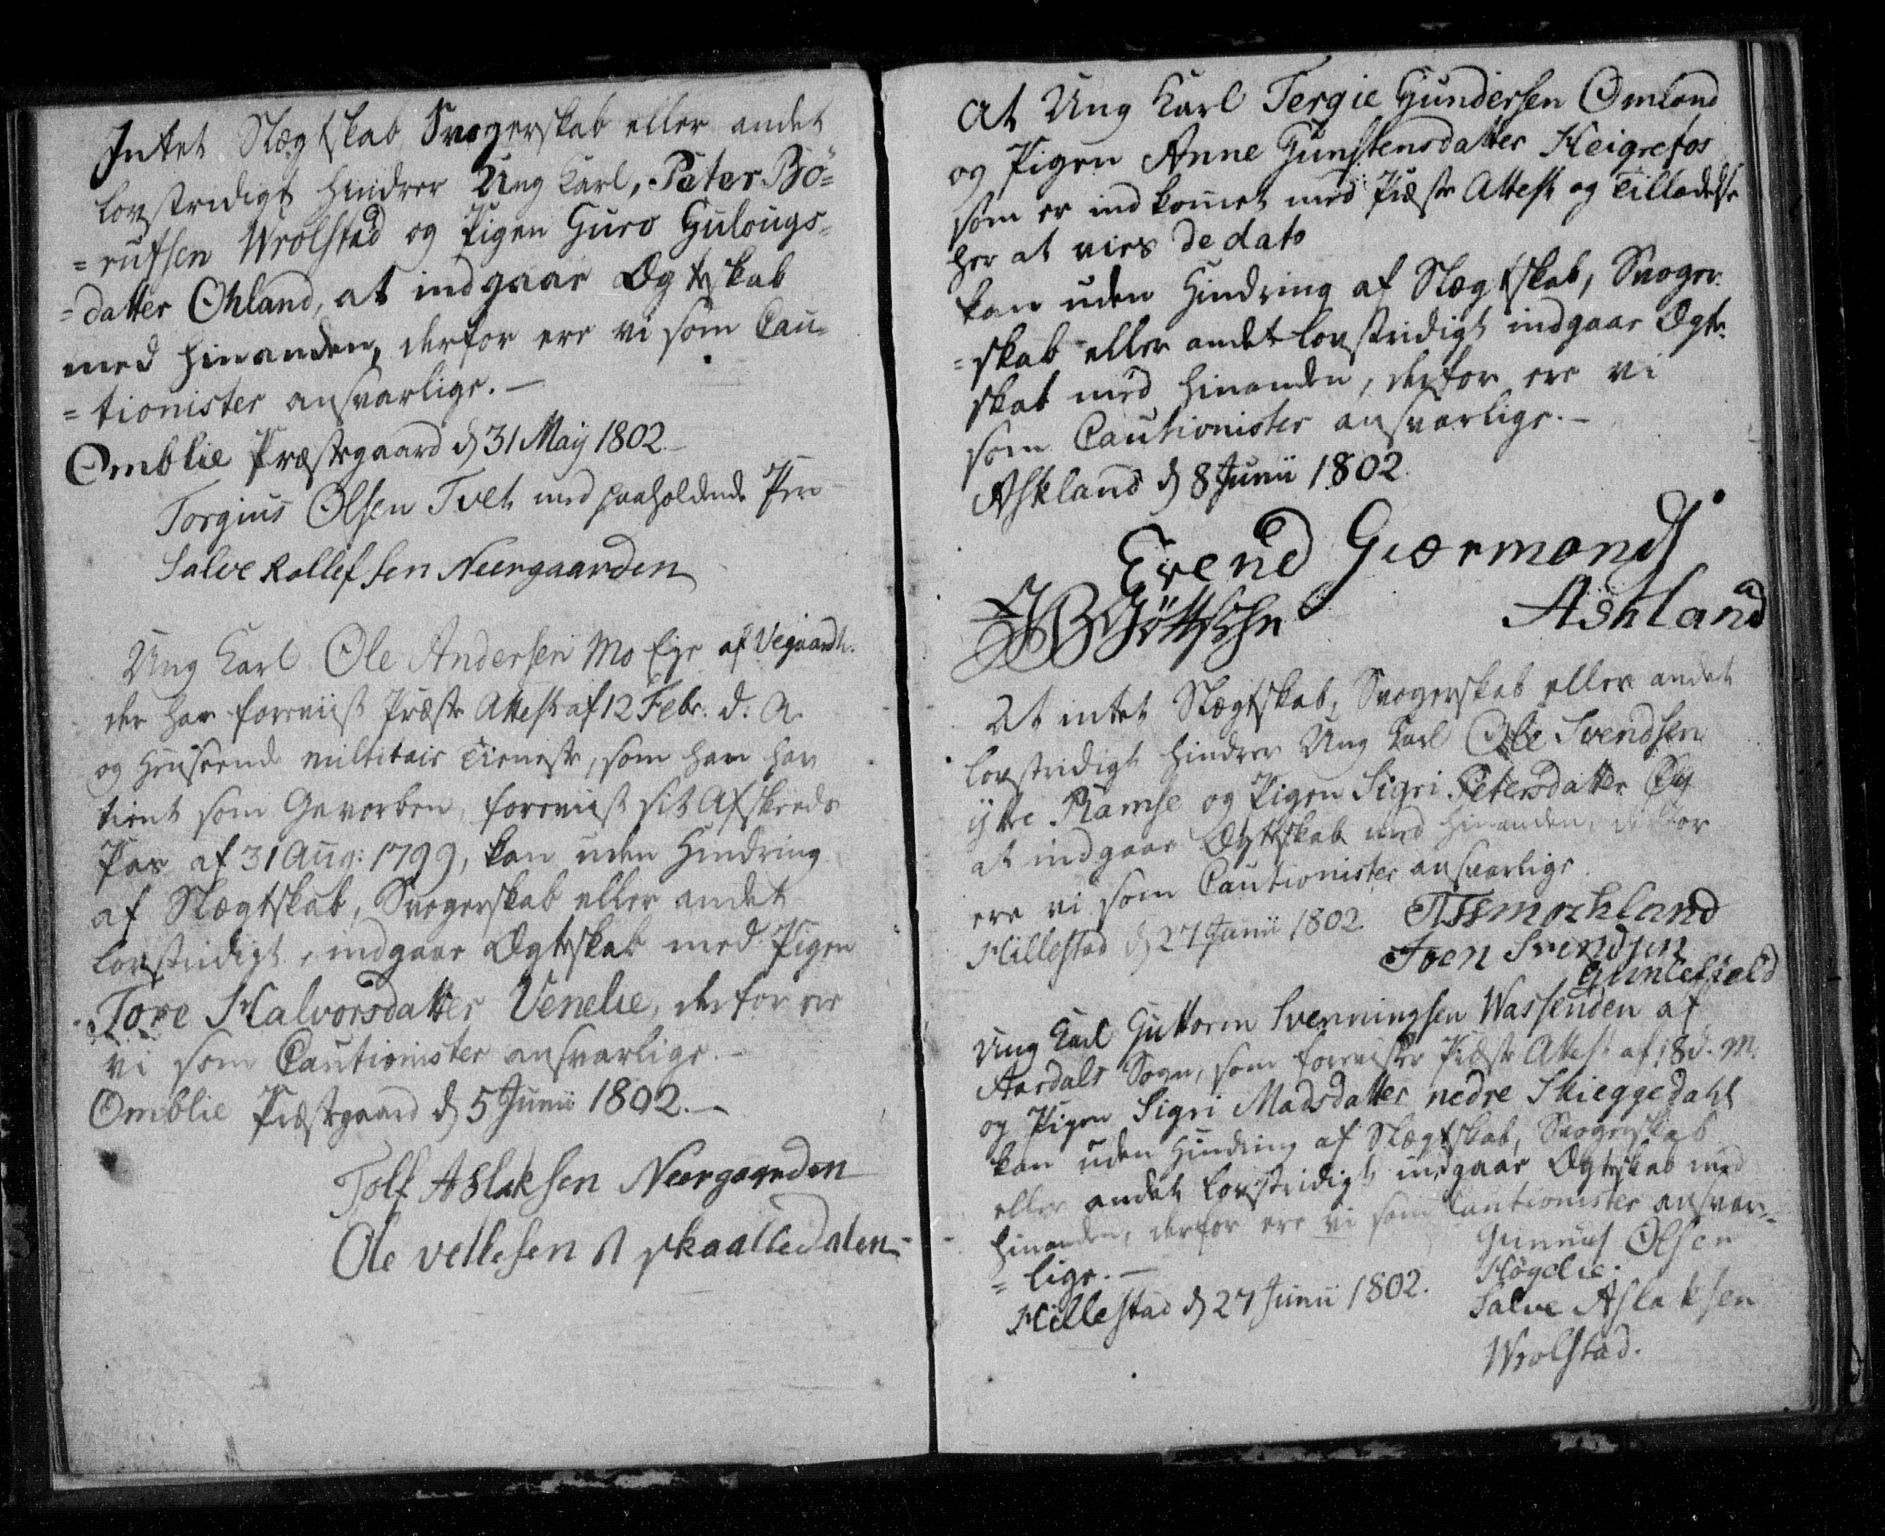 Intet Slægtskab, Svogerskab eller andet
lovstridigt hindrer Ung Karl, Peter Bö-
=rufsen Wrolstad og Pigen Guro Gulougs=
=datter Ohland, at indgaae Ægteskab
med hinanden, derfor ere vi som Cau=
=tionister ansvarlige. —
Omblie Præstegaard d 31 May 1802
Torgius Olsen Tvet med paaholdende Pen
Salve Rollefsen Neergaarden
Ung Karl Ole Andersen Mo Eje af Vegaardh.
der har foreviist Præste Attest af 12 Febr. d: A
og henseende militair Tieneste, som han har
tient som Gevorben, foreviist sit Afskeeds
Pas af 31 Aug: 1799, kan uden Hindring
af Slægtskab, Svogerskab eller andet
lovstridigt, indgaae Ægteskab med Pigen
Tore Halvorsdatter Venelie, derfor ere
vi som Cautionister ansvarlige. —
Omblie Præstegaard d 5 Junii 1802. —
Tolf Aslaksen Neergaarden
Ole Vellesen skaalledalen
At Ung Karl Tergie Gundersen Omland
og Pigen Anne Gunstensdatter Heigrefos
som er indkommet med Præste Attest og Tilladelse
her at vies de dato
kan uden Hindring af Slægtskab, Svoger=
=skab eller andet lovstridigt indgaae Ægte=
skab med hinanden, derfor ere vi
som Cautionister ansvarlige. —
Askland d 8 Junii 1802
Trend Giærmonds
Askland
Göttsche
At intet Slægtskab, Svogerskab eller andet
lovstridigt hindrer Ung Karl Ole Svendsen
ytre Ramse og Pigen Sigri Petersdatter
at indgaae Ægteskab med hinanden, derfor
ere vi som Cautionister ansvarlige
Hillestad d 27 Junii 1802.
Svendsen
Ung Karl Guttorm Svenningsen Wassenden af
Aardals Sogn, som foreviiste Præste Attest af 18 d. M.
og Pigen Sigri Madsdatter nedre Skieggedahl
kan uden Hindring af Slægtskab, Svogerskab
eller andet lovstridigt indgaae Ægteskab med
hinanden, derfor ere vi som Cautionister ansvar=
=lige. —
Hillestad d 27 Junii 1802.
Gunnuf Olsen
Høgelie.
Salve Aslaksen
Wrolstad.